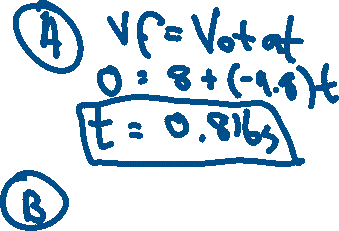 A Vf = Vo + at
0 = 8 + (-9.8)t
t = 0.816s
B